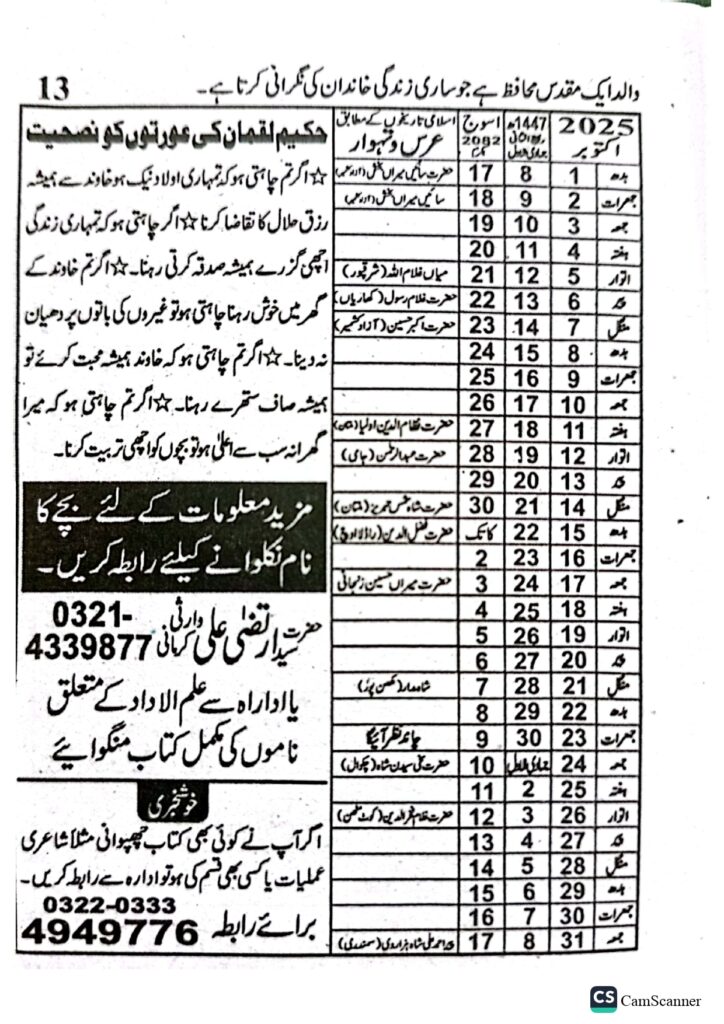 والد ایک مقدس محافظ ہے جو ساری زندگی خاندان کی نگرانی کرتا ہے۔
13
2025 اکتوبر | 1447ھ ربیع الثانی جمادی الاول | اسوج 2082 | اسلامی تاریخوں کے مطابق عرس و تہوار
بدھ 1 8 17 حضرت سائیں میراں بخش
جمعرات 2 9 18 سائیں میراں بخش
جمعہ 3 10 19
ہفتہ 4 11 20
اتوار 5 12 21 میاں غلام اللہ (شرقپور)
پیر 6 13 22 حضرت غلام رسول (کھاریاں)
منگل 7 14 23 حضرت اکبر حسین (آزاد کشمیر)
بدھ 8 15 24
جمعرات 9 16 25
جمعہ 10 17 26
ہفتہ 11 18 27 حضرت نظام الدین اولیا
اتوار 12 19 28 حضرت عبدالرحمن (جامی)
پیر 13 20 29
منگل 14 21 30 حضرت شاہ شمس تبریز (ملتان)
بدھ 15 22 کاتک حضرت فضل الدین
جمعرات 16 23 2
جمعہ 17 24 3 حضرت میراں حسین زنجانی
ہفتہ 18 25 4
اتوار 19 26 5
پیر 20 27 6
منگل 21 28 7 شاہ مدار (مکھن پور)
بدھ 22 29 8
جمعرات 23 30 9 چاند نظر آئیگا
جمعہ 24 جمادی الاول 10 حضرت سخی سیدن شاہ (چکوال)
ہفتہ 25 2 11
اتوار 26 3 12 حضرت غلام فخرالدین (کوٹ مٹھن)
پیر 27 4 13
منگل 28 5 14
بدھ 29 6 15
جمعرات 30 7 16
جمعہ 31 8 17 پیر احمد علی شاہ ہزاروی (سمندری)
حکیم لقمان کی عورتوں کو نصحیت
☆ اگر تم چاہتی ہو کہ تمہاری اولاد نیک ہو خاوند سے ہمیشہ
رزق حلال کا تقاضا کرنا ☆ اگر چاہتی ہو کہ تمہاری زندگی
اچھی گزرے ہمیشہ صدقہ کرتی رہنا۔ ☆ اگر تم خاوند کے
گھر میں خوش رہنا چاہتی ہو تو غیروں کی باتوں پر دھیان
نہ دینا۔ ☆ اگر تم چاہتی ہو کہ خاوند ہمیشہ محبت کرئے تو
ہمیشہ صاف ستھرے رہنا۔ ☆ اگر تم چاہتی ہو کہ میرا
گھرانہ سب سے اعلیٰ ہو تو بچوں کو اچھی تربیت کرنا۔
مزید معلومات کے لئے بچے کا
نام نکلوانے کیلئے رابطہ کریں۔
حضرت سید ارتضیٰ علی وارثی کرمانی 0321-4339877
یا ادارہ سے علم الاداد کے متعلق
ناموں کی مکمل کتاب منگوائیے
خوشخبری
اگر آپ نے کوئی بھی کتاب چھپوانی مثلاً شاعری
عملیات یا کسی بھی قسم کی ہو تو ادارہ سے رابطہ کریں۔
برائے رابطہ 0322-0333 4949776
CS CamScanner